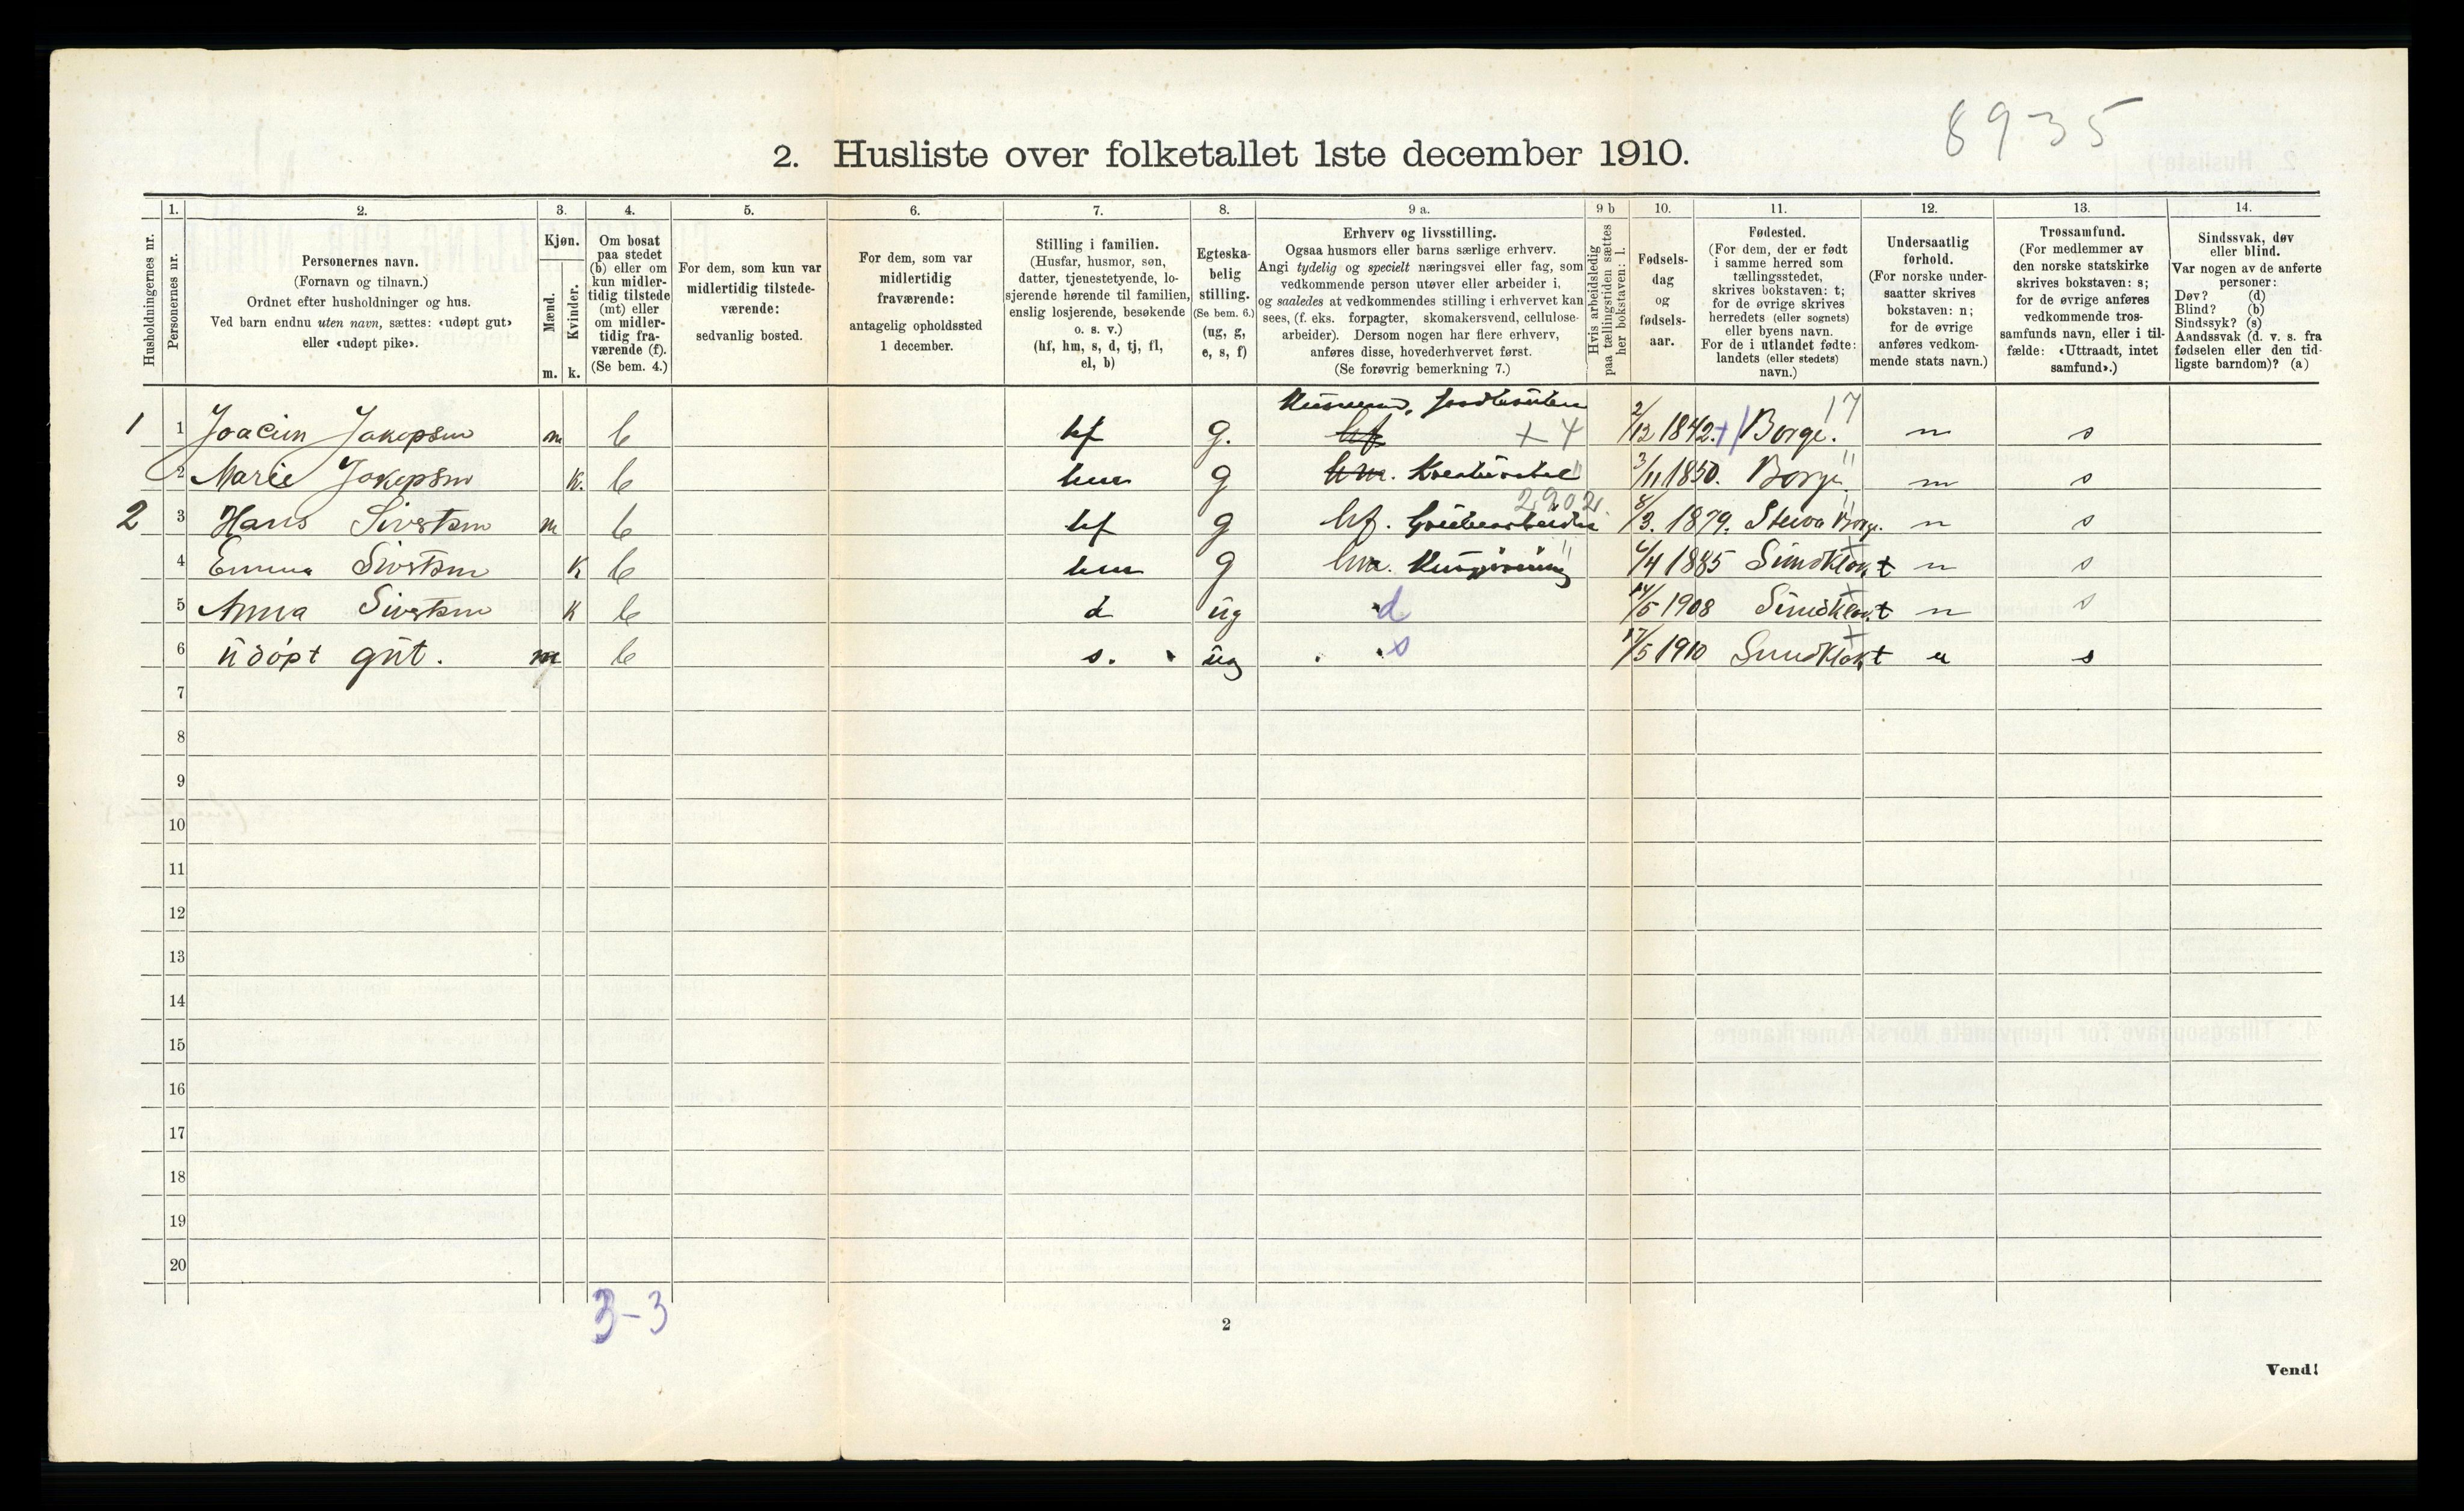 8935
2. Husliste over folketallet 1ste december 1910.
1. 2. 3. 4. 5. 6. 7. 8. 9 a. 9 b 10. 11. 12. 13. 14.
Husholdningernes nr.
Personernes nr.
Personernes navn.
(Fornavn og tilnavn.)
Ordnet efter husholdninger og hus.
Ved barn endnu uten navn, sættes: «udøpt gut»
eller «udøpt pike».
Kjøn.
Mænd.
Kvinder.
m. k.
Om bosat
paa stedet
(b) eller om
kun midler-
tidig tilstede
(mt) eller
om midler-
tidig fra-
værende (f).
(Se bem. 4.)
For dem, som kun var
midlertidig tilstede-
værende:
sedvanlig bosted.
For dem, som var
midlertidig
fraværende:
antagelig opholdssted
1 december.
Stilling i familien.
(Husfar, husmor, søn,
datter, tjenestetyende, lo-
sjerende hørende til familien,
enslig losjerende, besøkende
o. s. v.)
(hf, hm, s, d, tj, fl,
el, b)
Egteska-
belig
stilling.
(Se bem. 6.)
(ug, g,
e, s, f)
Erhverv og livsstilling.
Ogsaa husmors eller barns særlige erhverv.
Angi tydelig og specielt næringsvei eller fag, som
vedkommende person utøver eller arbeider i,
og saaledes at vedkommendes stilling i erhvervet kan
sees, (f. eks. forpagter, skomakersvend, cellulose-
arbeider). Dersom nogen har flere erhverv,
anføres disse, hovederhvervet først.
(Se forøvrig bemerkning 7.)
Hvis arbeidsledig
paa tællingstiden sættes
her bokstaven: l.
Fødsels-
dag
og
fødsels-
aar.
Fødested.
(For dem, der er født
i samme herred som
tællingsstedet,
skrives bokstaven: t;
for de øvrige skrives
herredets (eller sognets)
eller byens navn.
For de i utlandet fødte:
landets (eller stedets)
navn.)
Undersaatlig
forhold.
(For norske under-
saatter skrives
bokstaven: n;
for de øvrige
anføres vedkom-
mende stats navn.)
Trossamfund.
(For medlemmer av
den norske statskirke
skrives bokstaven: s;
for de øvrige anføres
vedkommende tros-
samfunds navn, eller i til-
fælde: «Uttraadt, intet
samfund».)
Sindssvak, døv
eller blind.
Var nogen av de anførte
personer:
Døv? (d)
Blind? (b)
Sindssyk? (s)
Aandssvak (d. v. s. fra
fødselen eller den tid-
ligste barndom)? (a)
17
1 1 Joacim Jakopsen m b hf g. hf +4 2/12 1842. Borge. n s
2 Marie Jakopsen k. b hm g hm. Kreaturstel 3/11 1850. Borge n s
2902
2 3 Hans Sivertsen m b hf g hf. Grubearbeider 8/3. 1879. Borge. n s
4 Emma Sivertsen k b hm g hm. Husgjerning 6/4 1885 Sundklak t n s
5 Anna Sivertsen k b d ug d 14/5 1908 Sundklak t n s
6 udøpt gut. m b s. ug s 17/5 1910 Sundklak t n s
7
8
9
10
11
12
13
14
15
16
17
18
19
20
3-3
2
Vend!